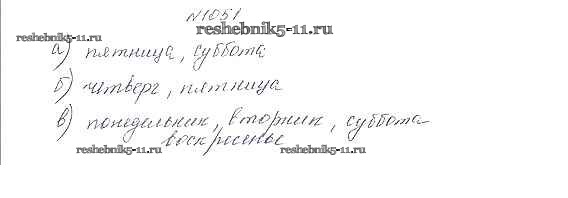 №1051
reshebnik5-11.ru
reshebnik5-11.ru
а) пятница, суббота
б) четверг, пятница
в) понедельник, вторник, суббота
воскресенье
reshebnik5-11.ru
reshebnik5-11.ru